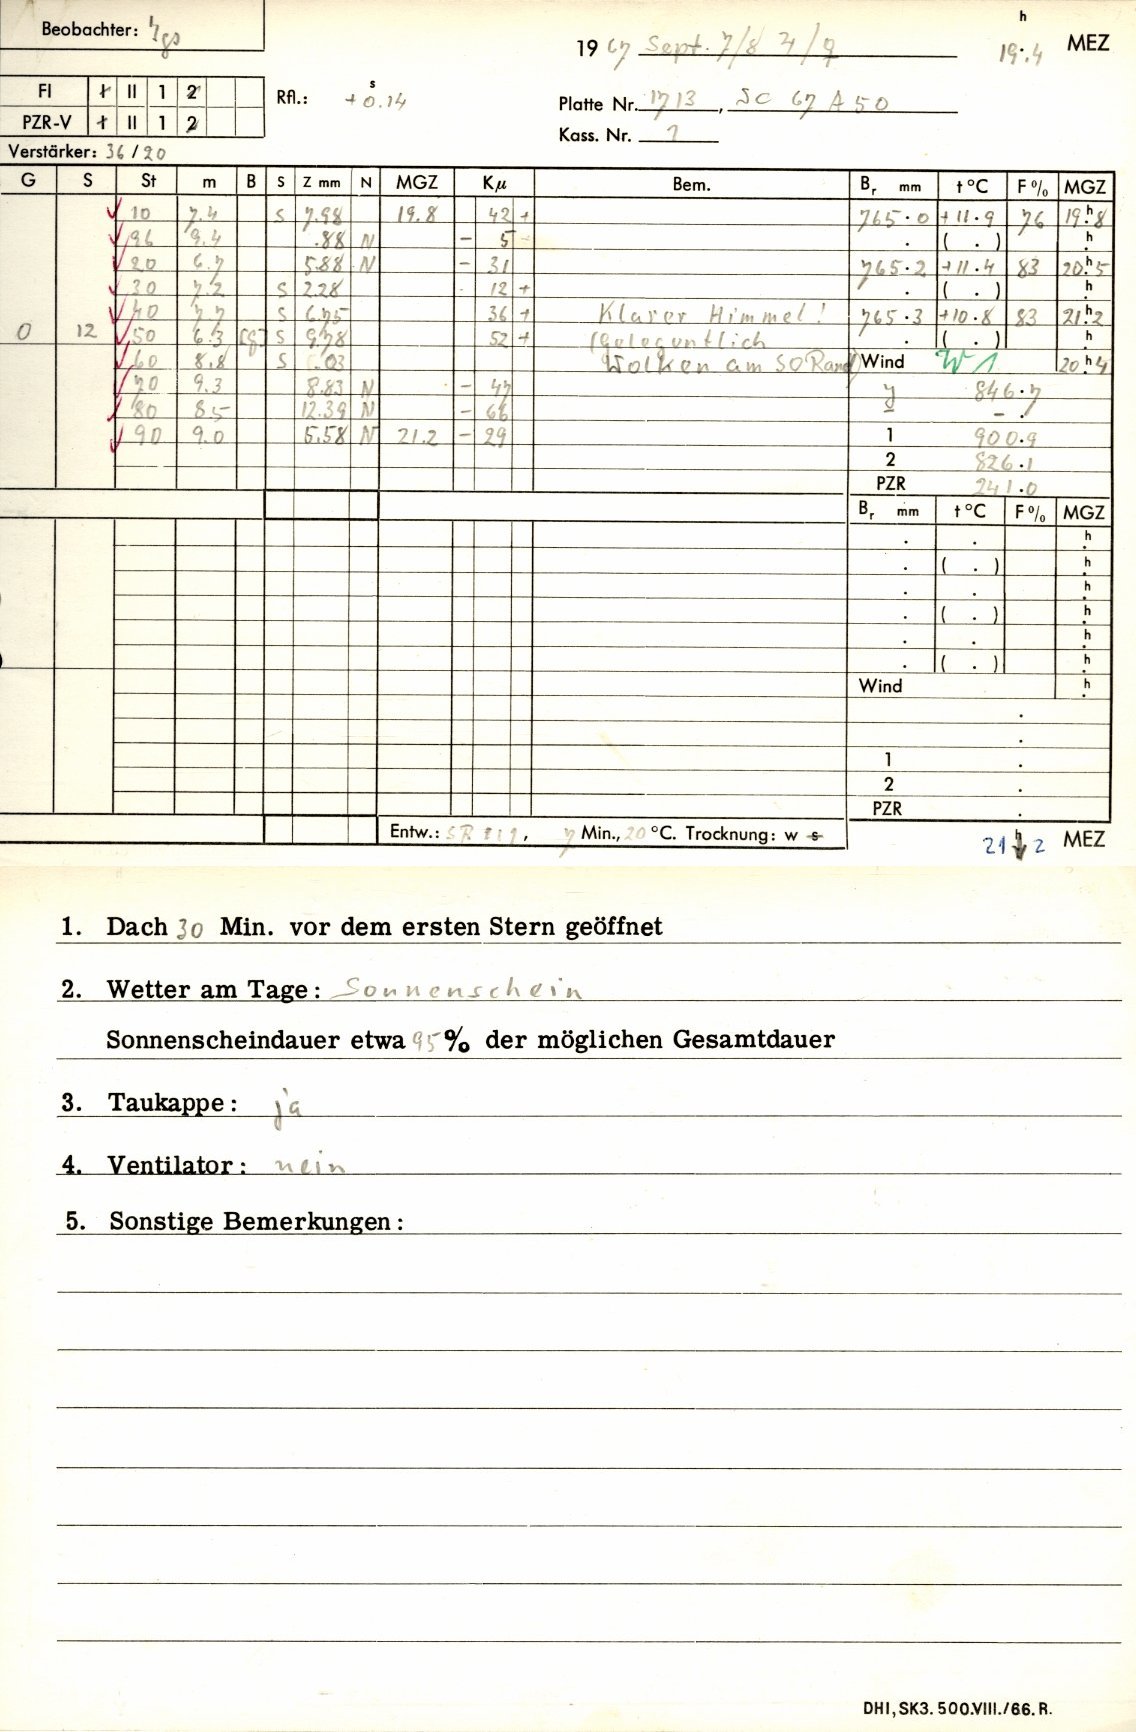 Beobachter:
h
1967 Sept. 7/8 19.4 MEZ
FI I II 1 2
Rfl.: + 0.14 s
Platte Nr. 1713, SC 67 A 50
PZR-V I II 1 2
Kass. Nr. 1
Verstärker: 36/20
G S St m B S Z mm N MGZ Kµ Bem. Br mm t °C F % MGZ
10 7.4 S 7.98 19.8 42 + 765.0 +11.9 76 19.h8
96 9.4 .88 N - 5 . ( . ) h
20 6.7 5.88 N - 31 765.2 +11.4 83 20.h5
30 7.2 S 2.28 12 + . ( . ) h
40 7.7 S 6.75 36 + Klarer Himmel! 765.3 +10.8 83 21.h2
0 12 50 6.3 [g] S 9.78 52 + (Gelegentlich . ( . ) h
60 8.8 S .03 Wolken am SO Rand) Wind W 1 20.h4
70 9.3 8.83 N - 47 y 846.7
80 8.5 12.39 N - 66 - .
90 9.0 5.58 N 21.2 - 29 1 900.9
2 826.1
PZR 241.0
Br mm t °C F % MGZ
. . h
. ( . ) h
. . h
. ( . ) h
. . h
. ( . ) h
Wind h
.
.
1 .
2 .
PZR .
Entw.: 7 Min., 20 °C. Trocknung: w s
21 h 2 MEZ
1. Dach 30 Min. vor dem ersten Stern geöffnet
2. Wetter am Tage: Sonnenschein
Sonnenscheindauer etwa 95 % der möglichen Gesamtdauer
3. Taukappe: ja
4. Ventilator: nein
5. Sonstige Bemerkungen:
DHI, SK3. 500.VIII./66. R.